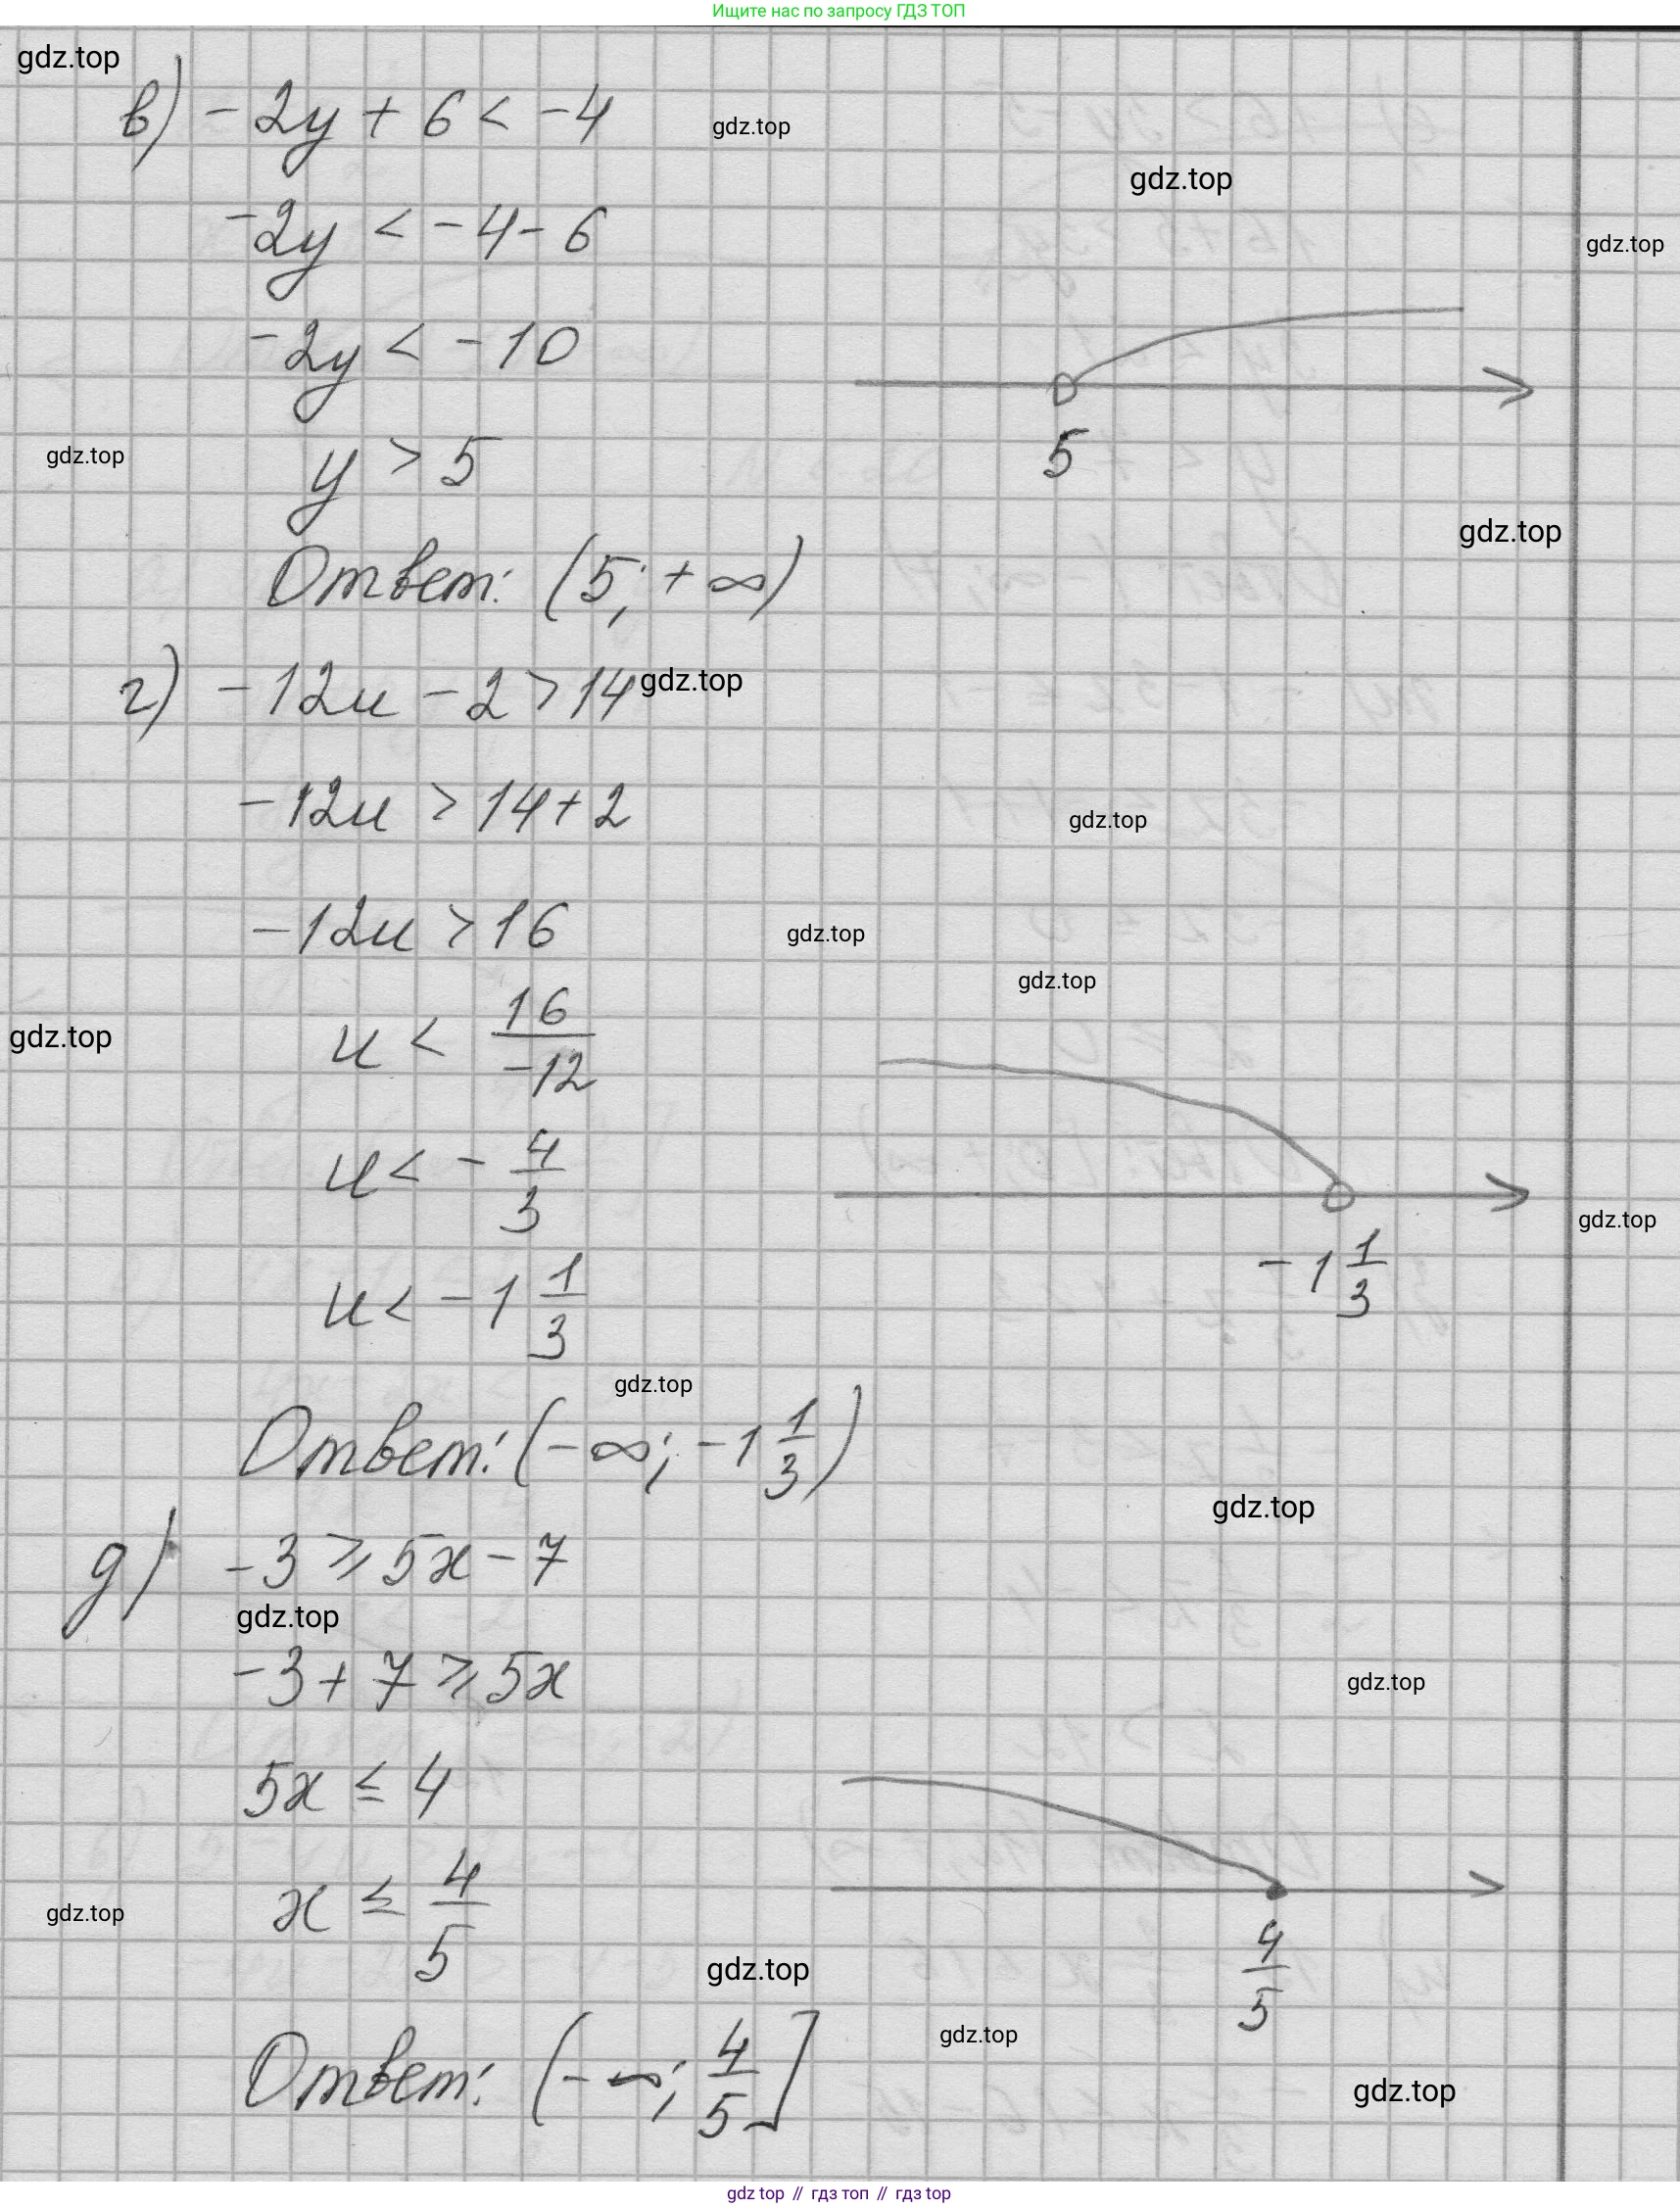 Ищите нас по запросу ГДЗ ТОП
gdz.top
в) -2y + 6 < -4
gdz.top
gdz.top
-2y < -4 - 6
gdz.top
-2y < -10
y > 5
5
gdz.top
gdz.top
Ответ: (5; +∞)
г) -12u - 2 > 14
gdz.top
-12u > 14 + 2
gdz.top
-12u > 16
gdz.top
gdz.top
u < 16/-12
gdz.top
u < - 4/3
gdz.top
u < -1 1/3
-1 1/3
gdz.top
Ответ: (-∞; -1 1/3)
gdz.top
д) -3 ⩾ 5x - 7
gdz.top
-3 + 7 ⩾ 5x
gdz.top
5x ≤ 4
x ≤ 4/5
gdz.top
4/5
gdz.top
gdz.top
Ответ: (-∞; 4/5]
gdz.top
gdz top // гдз топ // гдз top